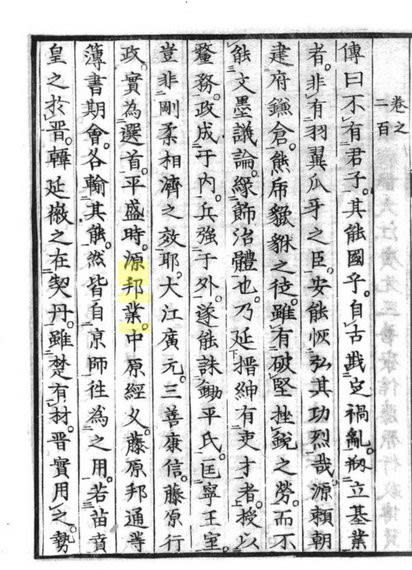 卷之
一百
傳曰。不有君子。其能國乎。自古戡定禍亂。剏立基業
者。非有羽翼爪牙之臣。安能恢弘其功烈哉。源賴朝
建府鎌倉。熊虎貔貅之徒。雖有破堅挫銳之勞。而不
能文墨議論。緣飾治體也。乃延搢紳有吏才者。授以
釐務。政成于內。兵強于外。遂能誅鋤平氏。匡寧王室。
豈非剛柔相濟之效耶。大江廣元。三善康信。藤原行
政實為選首。平盛時。源邦業。中原經義。藤原邦通等
簿書期會。各輸其能。然皆自京師往為之用。若苗賁
皇之於晉。韓延徽之在契丹。雖楚有材。晉實用之。勢